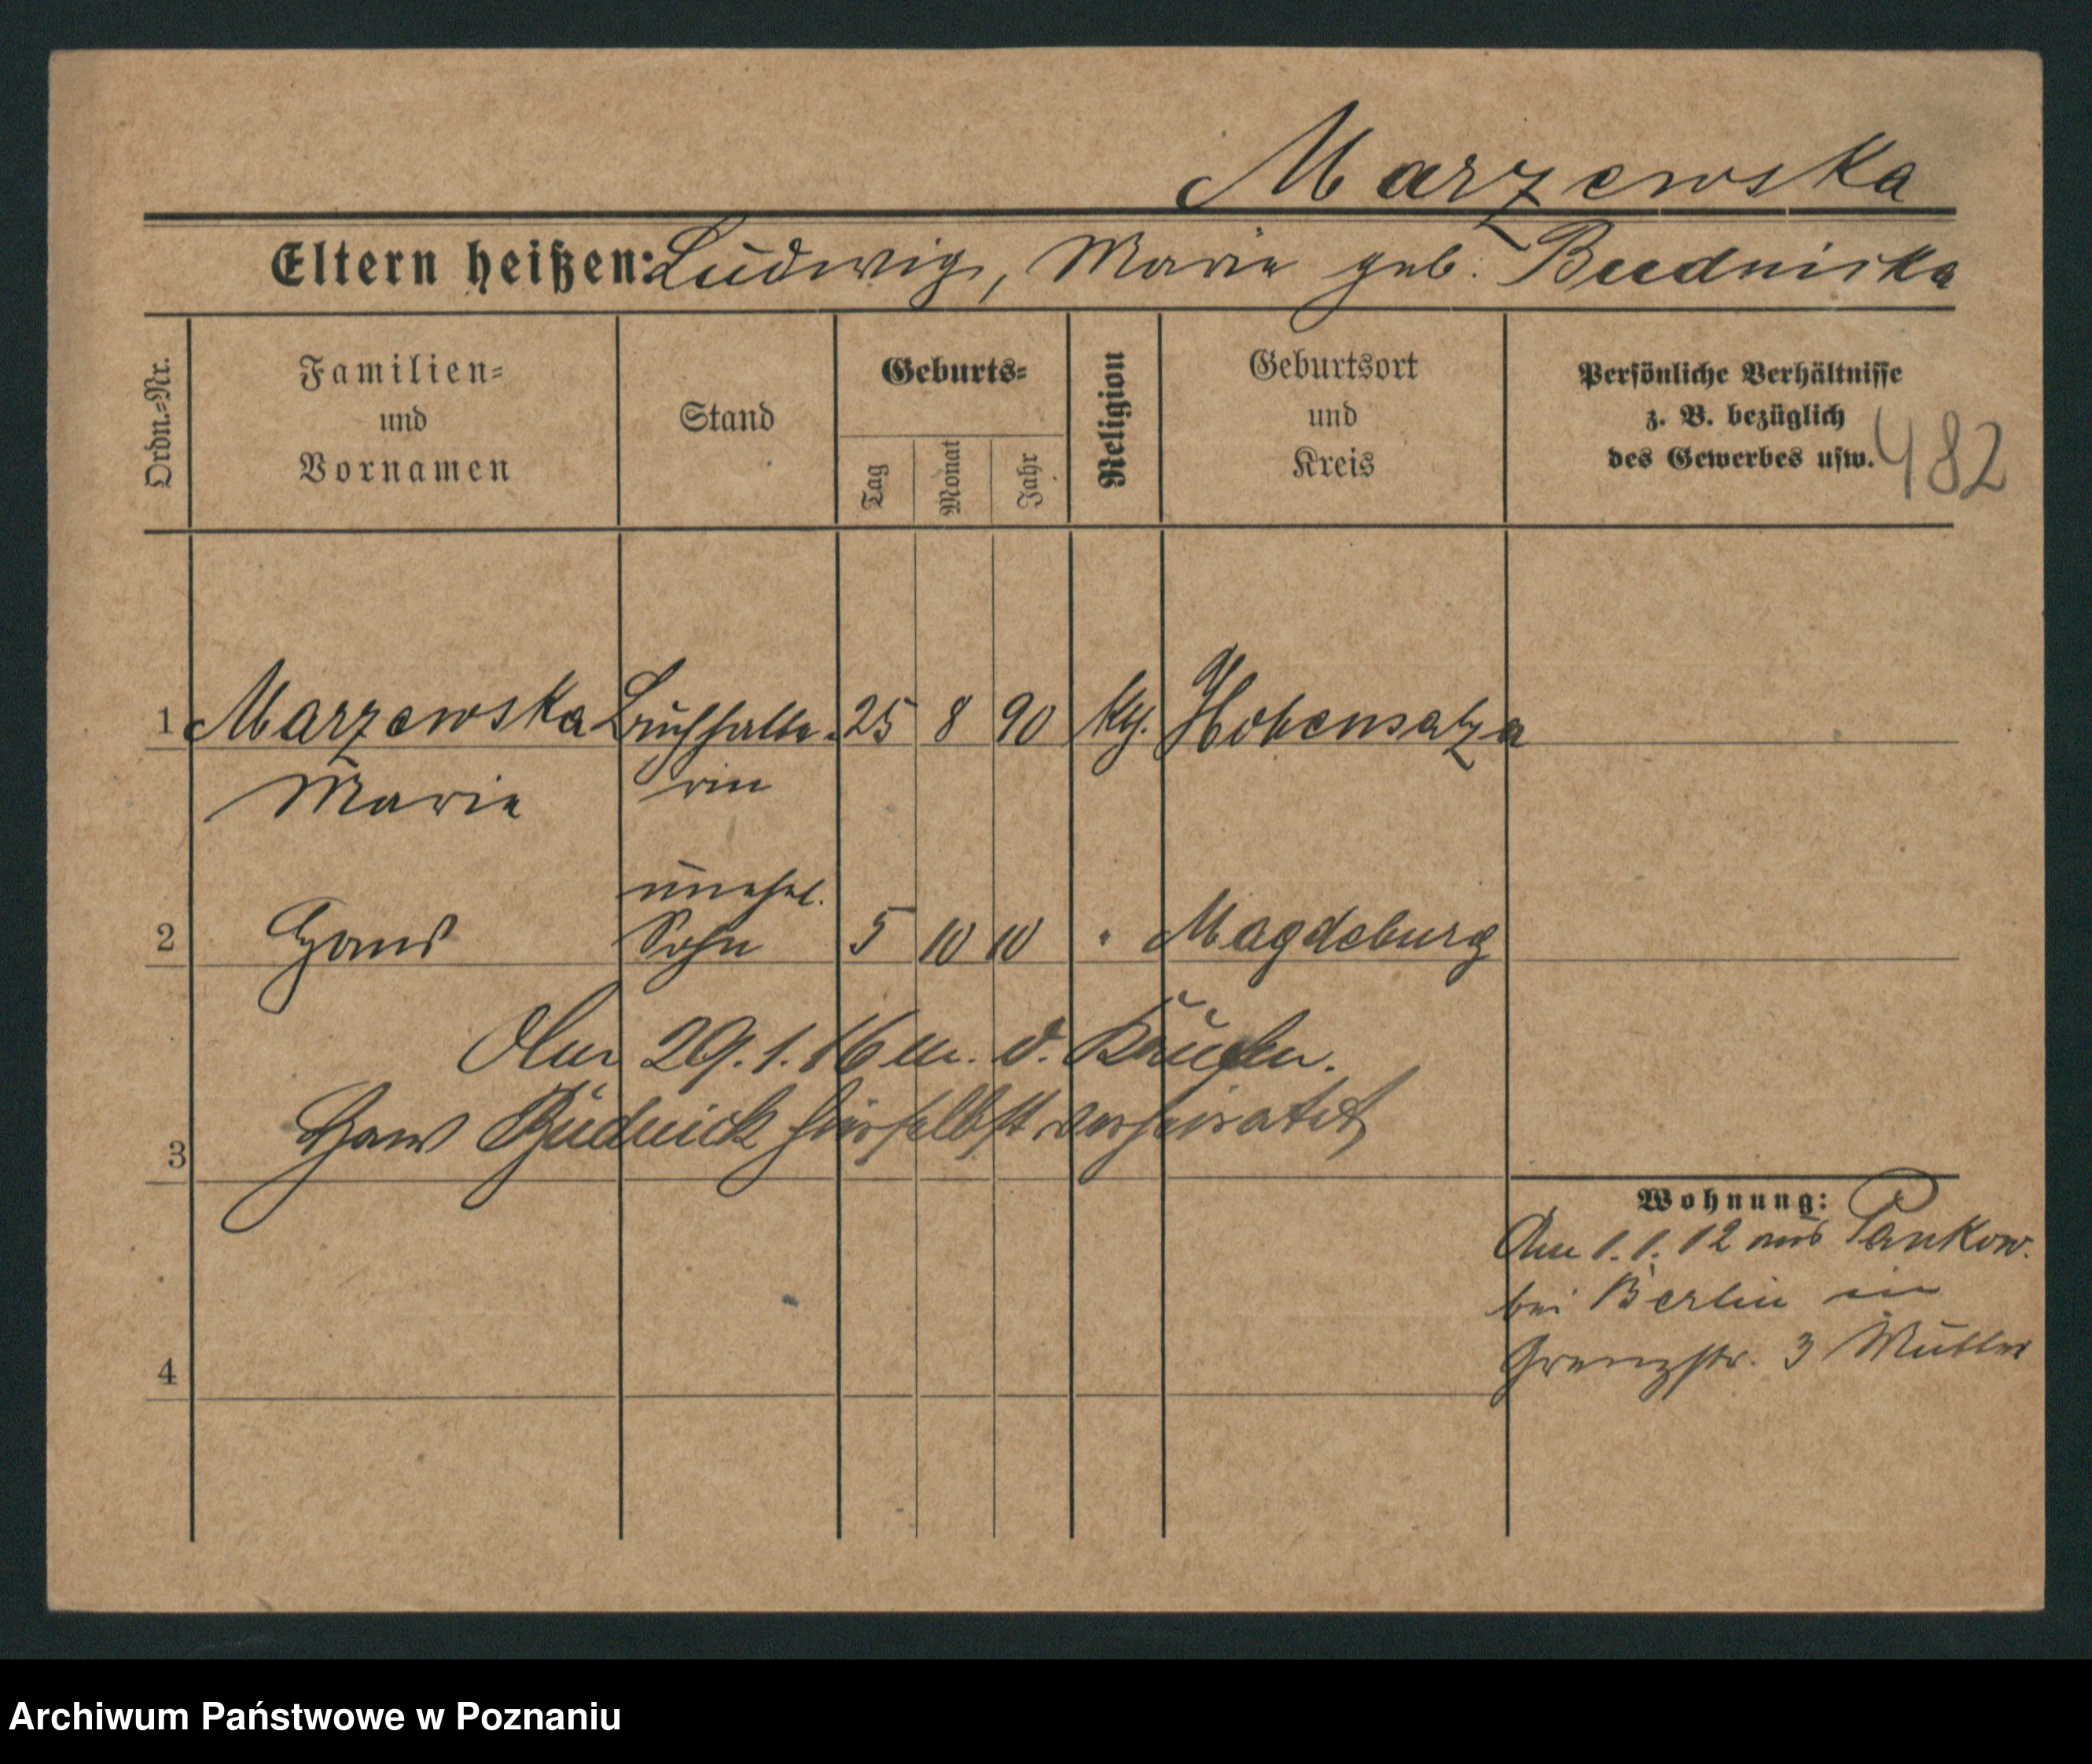 Marzewska
Eltern heißen: Ludwig, Marie geb. Budniska
Ordn.-Nr.
Familien-
und
Vornamen
Stand
Geburts-
Tag
Monat
Jahr
Religion
Geburtsort
und
Kreis
Persönliche Verhältnisse
z. B. bezüglich
des Gewerbes usw.
482
1 Marzewska Buchhalte- 25 8 90 kth. Hohensalza
Marie rin
unehel.
2 Hans Sohn 5 10 10 " Magdeburg
Am 29.1.16 m. d.
3 Hans Budnick hierselbst verheiratet
Wohnung:
Am 1.1.12 aus Pankow
bei Berlin in
Grenzstr. 3 Mutter
4
Archiwum Państwowe w Poznaniu